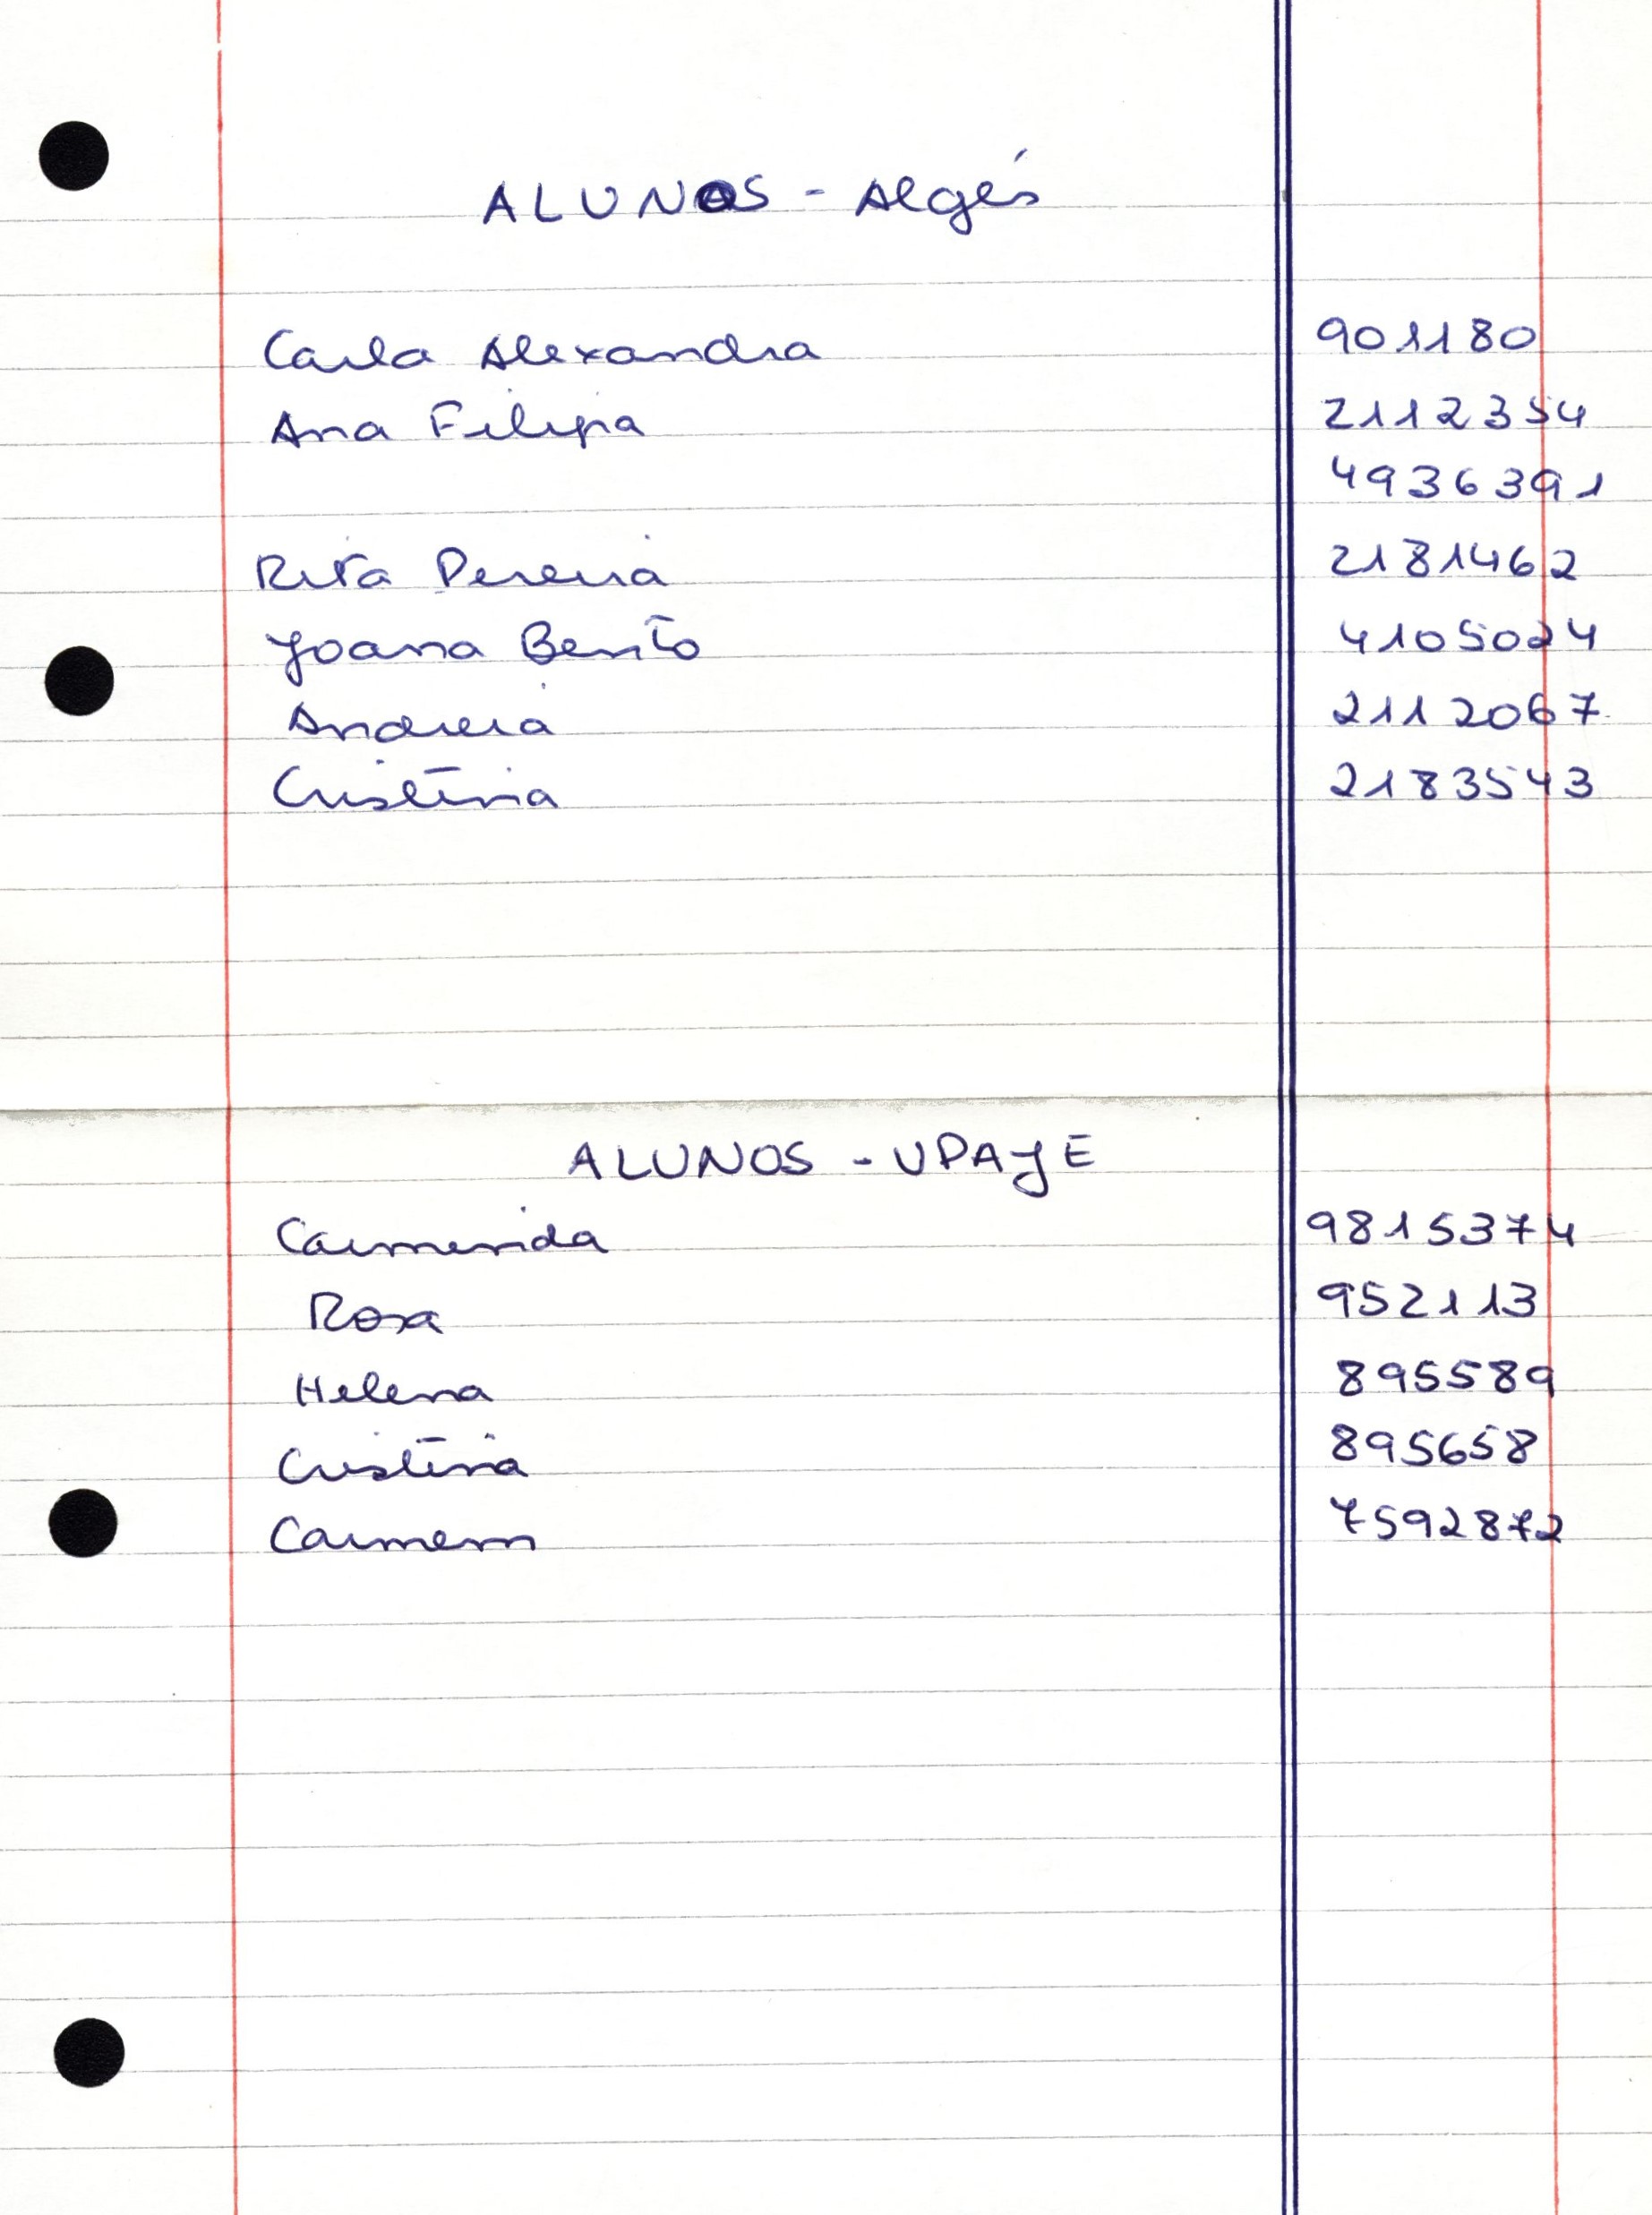 ALUNOS - Algés
Carla Alexandra 901180
Ana Filipa 2112354
4936391
Rita Pereira 2181462
Joana Bento 4105024
Andreia 2112067
Cristina 2183543
ALUNOS - UPAJE
Carmenida 9815374
Rosa 952113
Helena 895589
Cristina 895658
Carmem 7592872